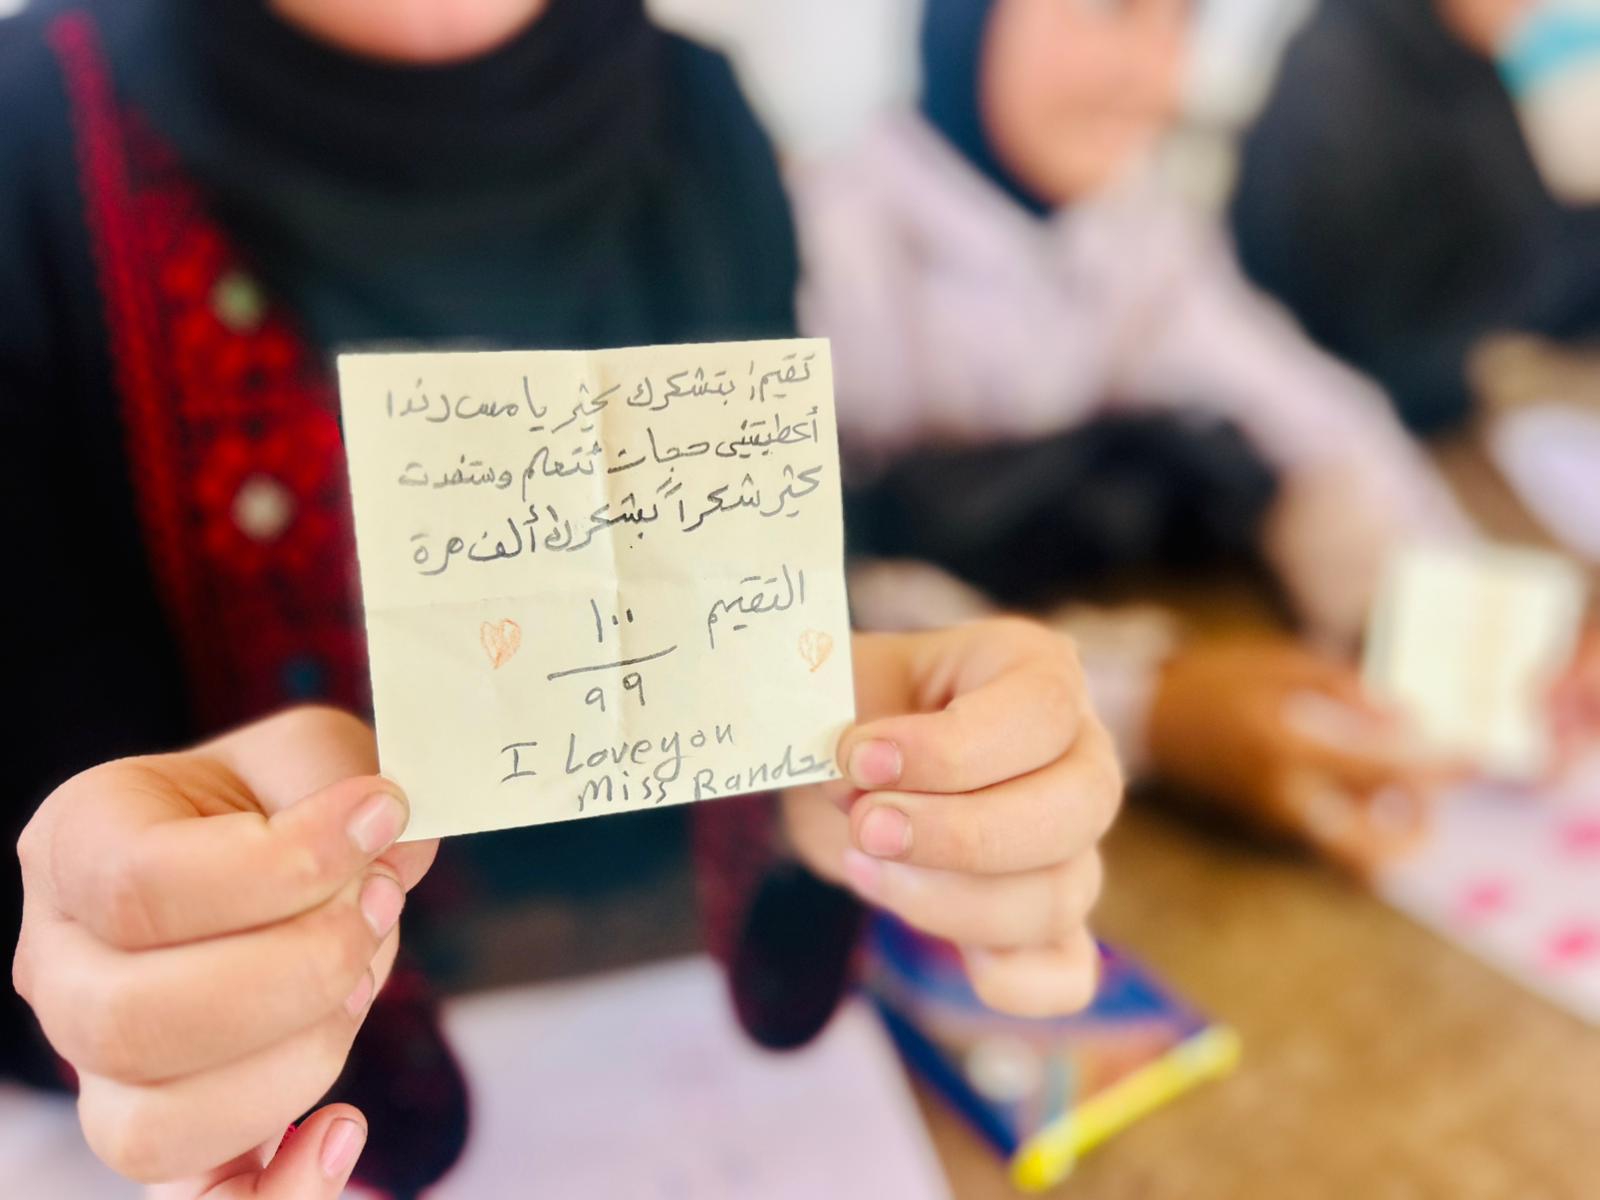 تقيم: بتشكرك كثير يا مس رندا
أعطيتيني حجات نتعلم وستفدت
كثير شكراً بشكرك ألف مرة
التقيم ١٠٠
٩٩
I Love you
Miss Randa.